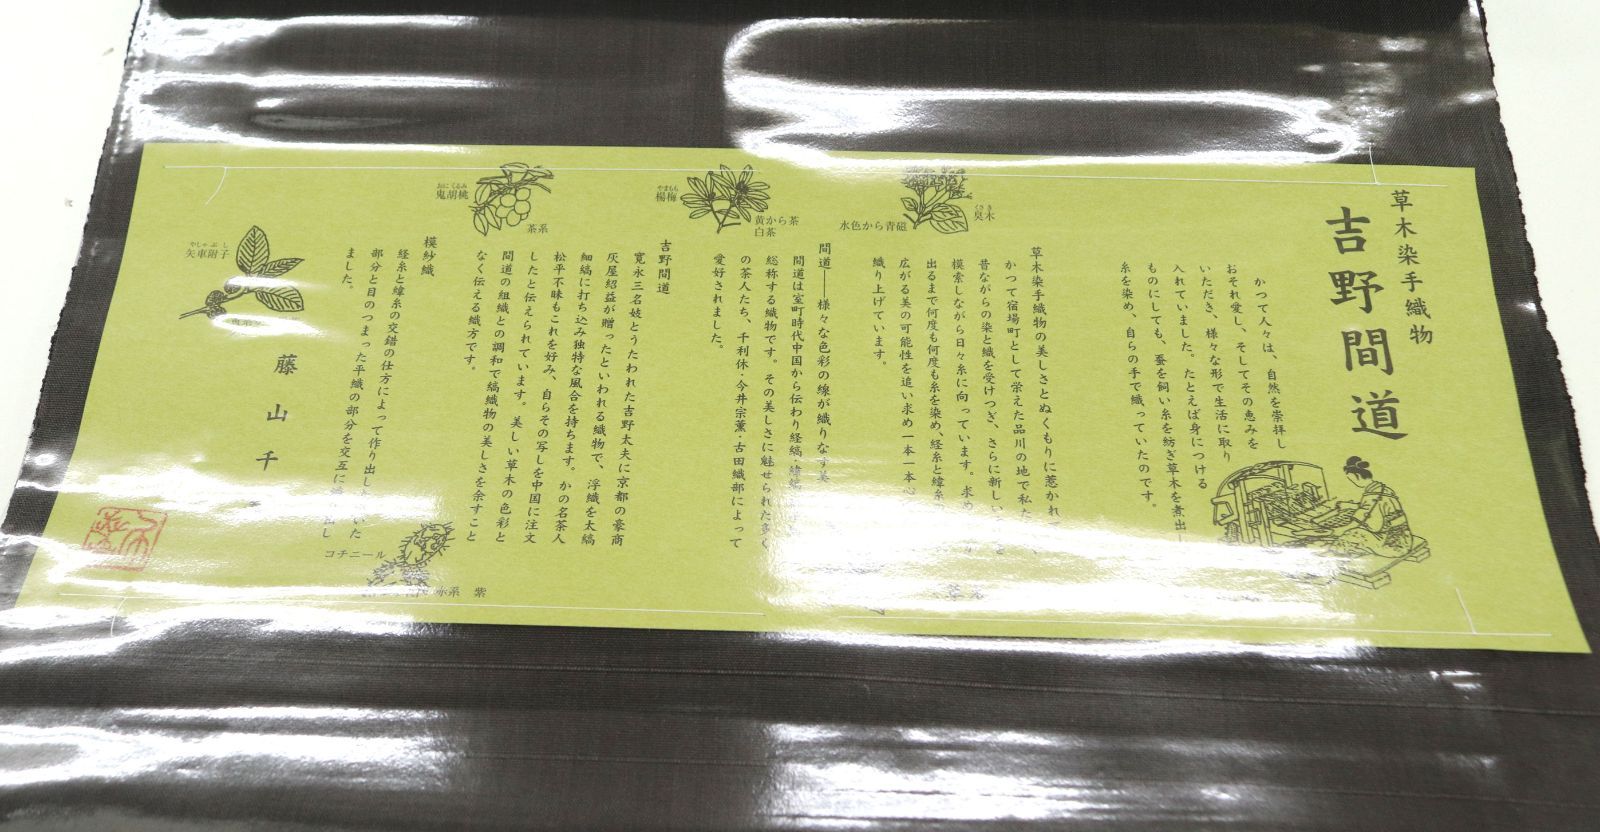 草木染手織物
吉野間道
かつて人々は、自然を崇拝し
おそれ愛し、そしてその恵みを
いただき、様々な形で生活に取り
入れていました。たとえば身につける
ものにしても、蚕を飼い糸を紡ぎ草木を煮出し
糸を染め、自らの手で織っていたのです。
草木染手織物の美しさとぬくもりに惹かれて
かつて宿場町として栄えた品川の地で私た
昔ながらの染と織を受けつぎ、さらに新しい
模索しながら日々糸に向っています。求め
出るまで何度も何度も糸を染め、経糸と緯糸
広がる美の可能性を追い求め一本一本心
織り上げています。
間道――様々な色彩の線が織りなす美
間道は室町時代中国から伝わり経縞・緯縞
総称する織物です。その美しさに魅せられた多く
の茶人たち、千利休・今井宗薫・古田織部によって
愛好されました。
吉野間道
寛永三名妓とうたわれた吉野太夫に京都の豪商
灰屋紹益が贈ったといわれる織物で、浮織を太縞
細縞に打ち込み独特な風合を持ちます。かの名茶人
松平不昧もこれを好み、自らその写しを中国に注文
したと伝えられています。美しい草木の色彩と
間道の組織との調和で縞織物の美しさを余すこと
なく伝える織方です。
模紗織
経糸と緯糸の交錯の仕方によって作り出した
部分と目のつまった平織の部分を交互に
ました。
藤山千
くさき
臭木
水色から青磁
やまもも
楊梅
黄から茶
白茶
おにくるみ
鬼胡桃
茶系
やしゃぶし
矢車附子
コチニール
赤系 紫